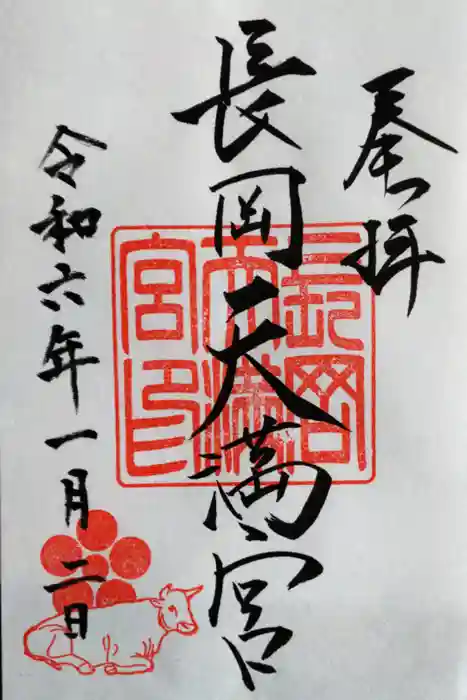 奉拝
長岡天満宮
令和六年一月二日
長岡天満宮印